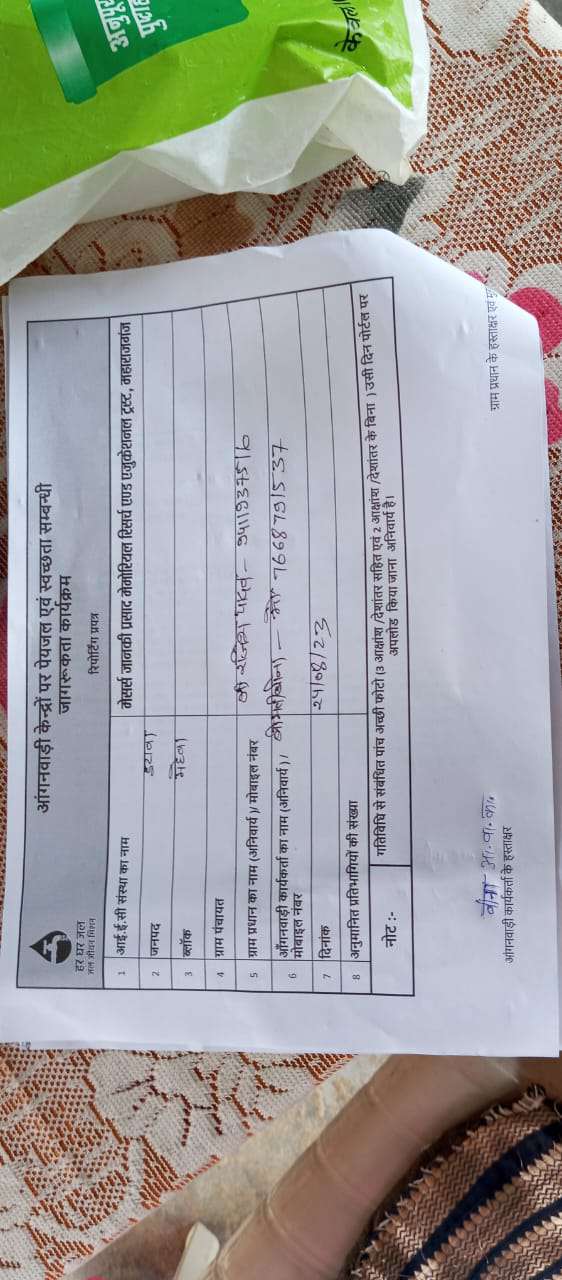 आंगनवाड़ी केन्द्रों पर पेयजल एवं स्वच्छता सम्बन्धी
जागरूकता कार्यक्रम
रिपोर्टिंग प्रपत्र
हर घर जल
जल जीवन मिशन
1 आई.ई.सी संस्था का नाम मेसर्स जानकी प्रसाद मेमोरियल रिसर्च एण्ड एजुकेशनल ट्रस्ट, महाराजगंज
2 जनपद इटावा
3 ब्लॉक महेवा
4 ग्राम पंचायत
5 ग्राम प्रधान का नाम (अनिवार्य)/ मोबाइल नंबर श्री
6 आँगनवाड़ी कार्यकर्ता का नाम (अनिवार्य)/ मोबाइल नंबर 7668791537
7 दिनांक 24/08/23
8 अनुमानित प्रतिभागियों की संख्या
नोट :- गतिविधि से संबंधित पांच अच्छी फोटो (3 आक्षांश /देशांतर सहित एवं 2 आक्षांश /देशांतर के बिना ) उसी दिन पोर्टल पर
अपलोड किया जाना अनिवार्य है।
आंगनवाड़ी कार्यकर्ता के हस्ताक्षर
ग्राम प्रधान के हस्ताक्षर एवं